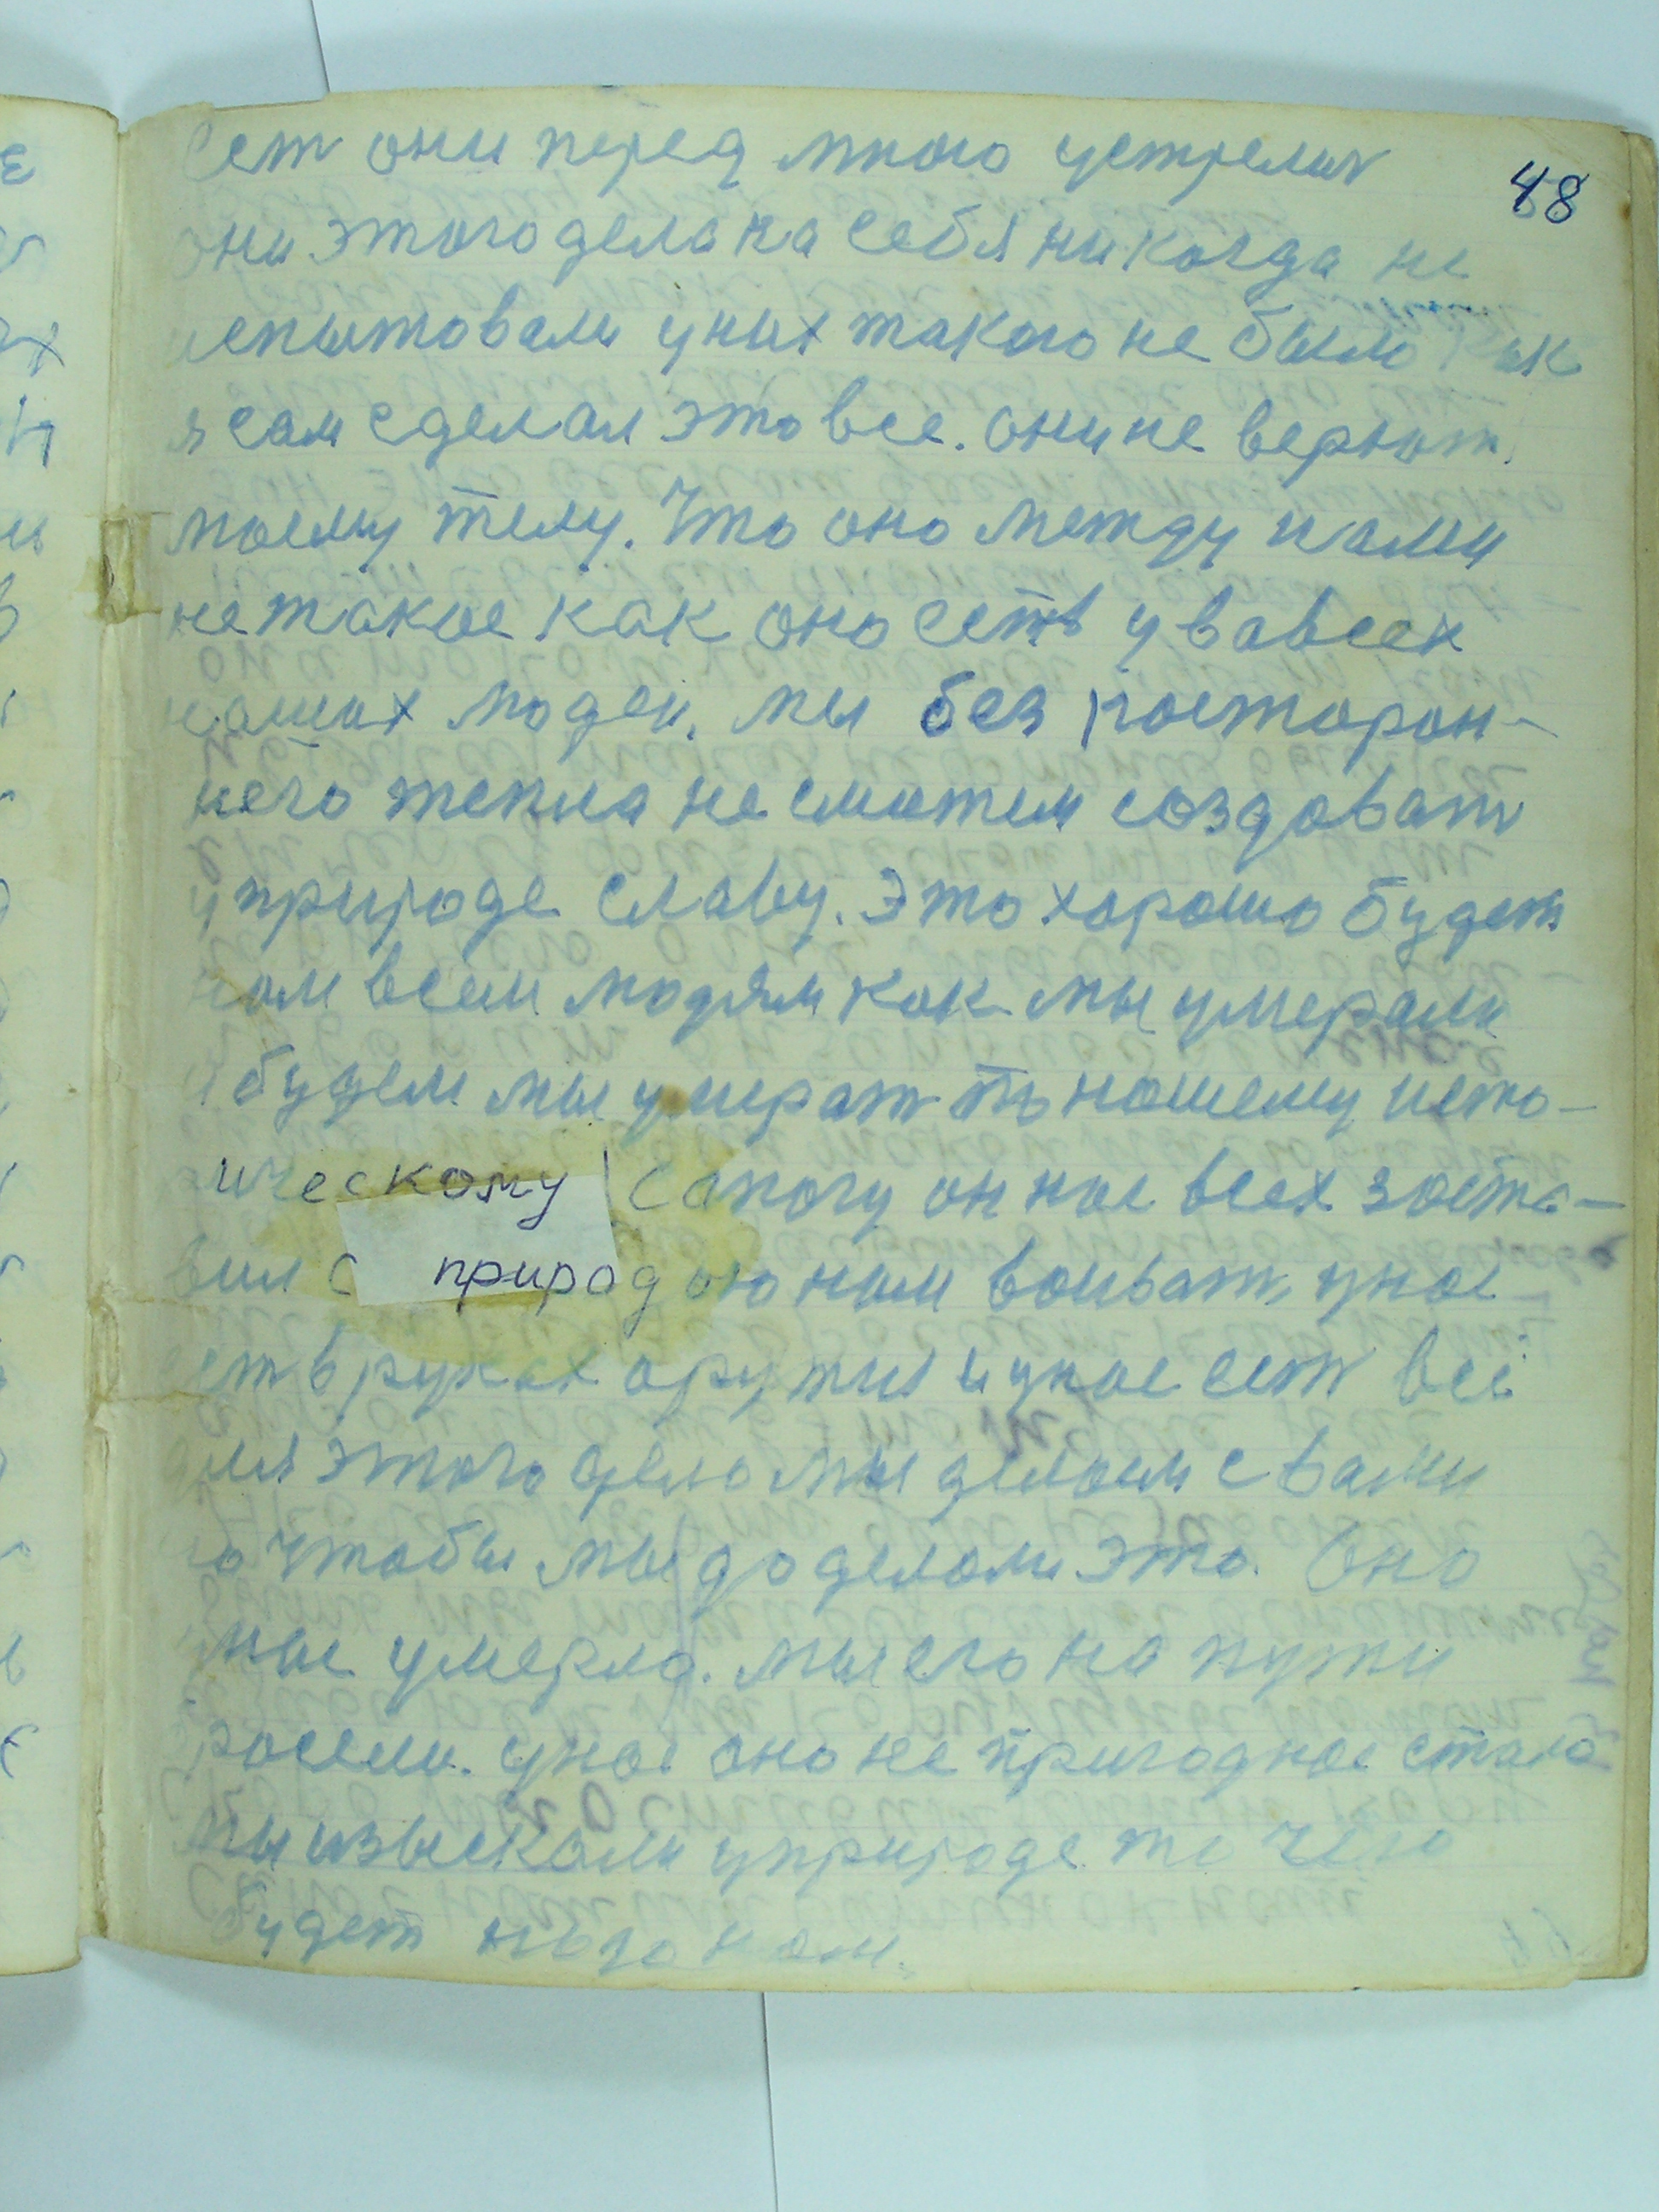 48
сет они перед мною устрелис
они этого дела на себя никогда не
испытовали у них такого не было как
я сам сделал это все. они не верют
моему телу. Что оно между нами
не такое как оно есть у вавсех
наших людей, мы без посторон-
него тепла не сможем создават
у природе славу. Это хорошо будет
нам всем людям как мы умерали
и будем мы умерат по нашему исто-
ическому сапогу он нас всех заста-
вил с природою ним воиват, у нас
ест в руках оружия и у нас ест всё
для этого дела мы делаем с вами
чтобы мы доделали это. Оно
нас умерло. мы его на пути
росели. у нас оно не пригодное стало
мы изыскали у природе то чего
будет нам.